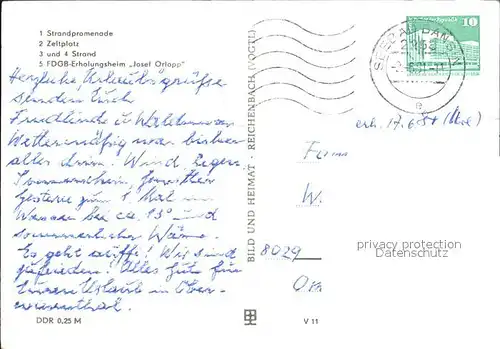 1 Strandpromenade
2 Zeltplatz
3 und 4 Strand
5 FDGB-Erholungsheim „Josef Orlopp"
Herzliche Urlaubsgrüße
senden Euch
Friedlinde u. Waldemar
Wettermäßig war bisher
alles drin. Wind, Regen,
Sonnenschein,
Gestern zum 1. Mal im
Wasser bei ca. 13° und
sommerlicher Wärme.
Es geht Wir sind
zufrieden! Alles Gute für
Euren Urlaub in Ober-
wiesenthal.
DDR 0,25 M
BILD UND HEIMAT · REICHENBACH (VOGTL)
V 11
SEEBAD BANSIN
2255
10
erh. 17.6.84
Fam
W.
8029
privacy protection
Datenschutz